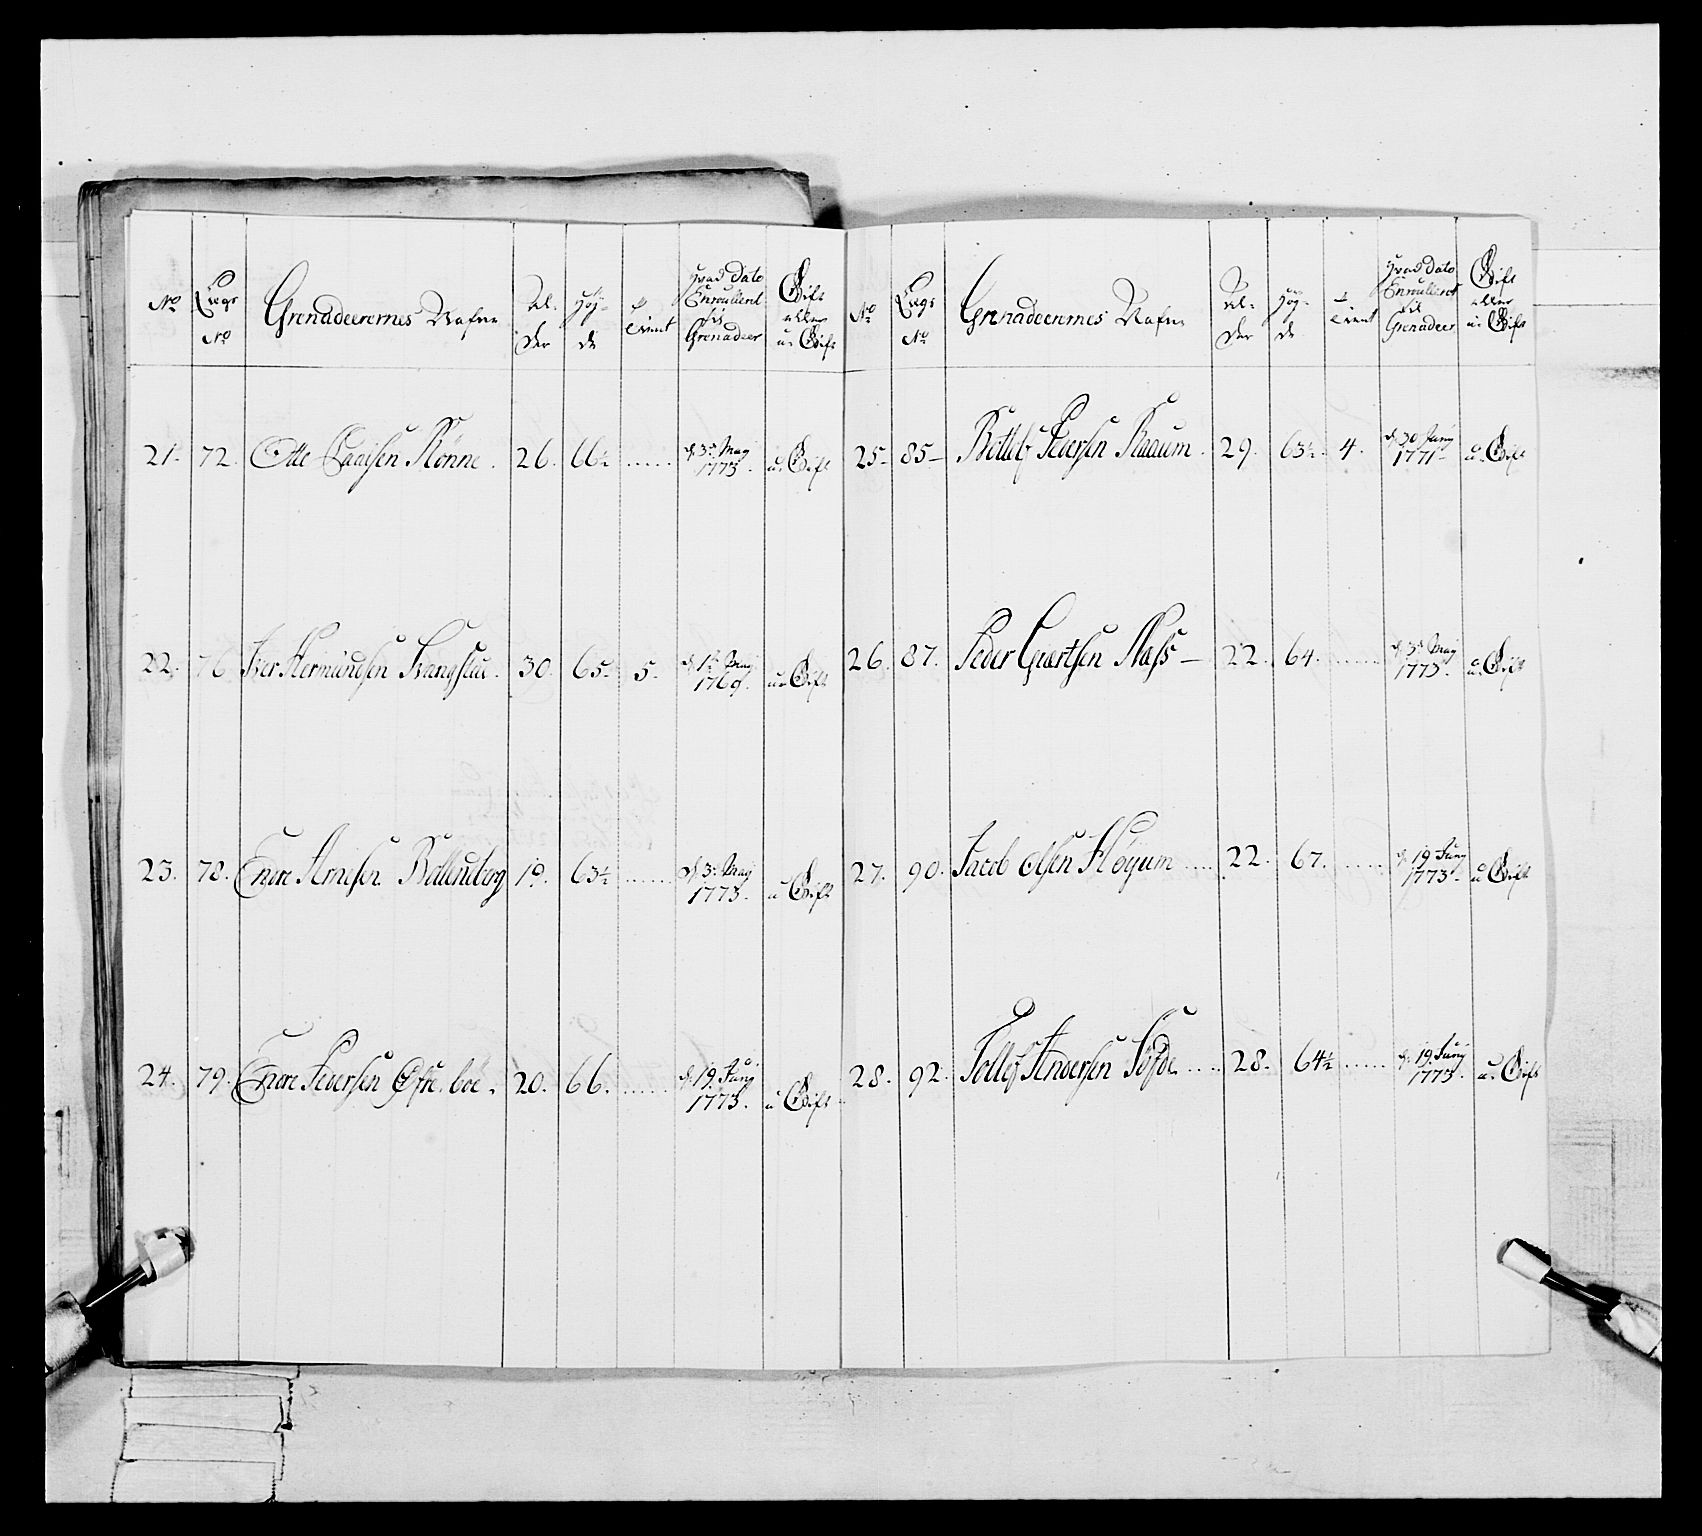 No Lægs No Grenadeerernes Nafne Al- der Høy- de Tient Hvad Dato Enroulleret til Grenadeer Gift eller u- Gift
21. 72. Otte Laaisen Rönne. 26. 66½ ...... d. 3. May 1773. u. Gift
22. 76 Iver Hermundsen Svangstue. 30. 65. 5. d. 12. May 1769. u. Gift
23. 78. Endre Arnesen 19. 63½ ...... d. 3. May 1773. u Gift
24. 79. Endre Pedersen Øfre-böe. 20. 66. ...... d. 19. Juny 1773. u Gift
No Lægs No Grenadeerernes Nafne Al- der Høy- de Tient Hvad Dato Enroulleret til Grenadeer Gift eller u- Gift
25. 85. Pedersen 29. 63½. 4. d. 30 Juny 1771. u. Gift
26. 87. Peder Giertsen Næss 22. 64. ...... d. 3. May 1773. u. Gift
27. 90. Jacob Olsen Fløyum ..... 22. 67. ...... d. 19 Juny 1773. u Gift
28. 92. Tollef Andersen ..... 28. 64½ ...... d. 19. Juny 1773. u. Gift